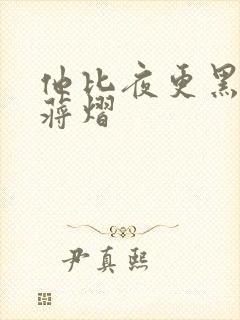 他比夜更黑
蒋熠
尹真熙